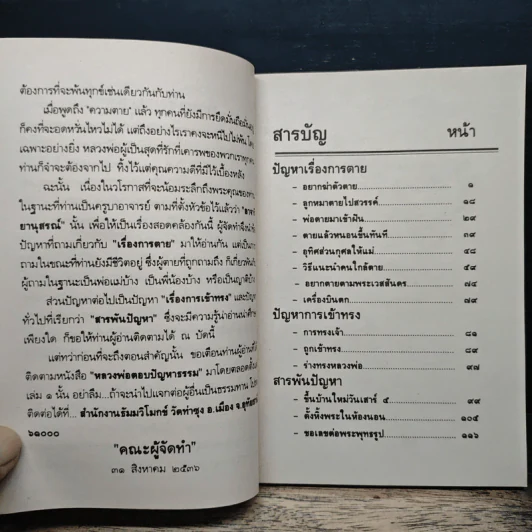 ต้องการที่จะพ้นทุกข์เช่นเดียวกันกับท่าน
เมื่อพูดถึง "ความตาย" แล้ว ทุกคนที่ยังมีการยึดมั่นถือมั่น
ก็คงที่จะอดหวั่นไหวไม่ได้ แต่ถึงอย่างไรเราคงจะหนีไปไม่พ้น
เฉพาะอย่างยิ่ง หลวงพ่อผู้เป็นสุดที่รักที่เคารพของพวกเราทุก
ท่านก็จำจะต้องจากไป ทิ้งไว้แต่คุณความดีที่มีไว้เบื้องหลัง
ฉะนั้น เนื่องในวโรกาสที่จะน้อมระลึกถึงพระคุณของท่าน
ในฐานะที่ท่านเป็นครูบาอาจารย์ ตามที่ตั้งหัวข้อไว้แล้วว่า
ยานุสรณ์" นั้น เพื่อให้เป็นเรื่องสอดคล้องกันนี้ ผู้จัดทำจึง
ปัญหาที่ถามเกี่ยวกับ "เรื่องการตาย" มาให้อ่านกัน แต่เป็น
ถามในขณะที่ท่านยังมีชีวิตอยู่ ซึ่งผู้ตายที่ถูกถามถึง ก็เกี่ยวพัน
ผู้ถามในฐานะเป็นพ่อแม่บ้าง เป็นพี่น้องบ้าง หรือเป็นญาติ
ส่วนปัญหาต่อไปเป็นปัญหา "เรื่องการเข้าทรง" และปัญ
ทั่วไปที่เรียกว่า "สารพันปัญหา" ซึ่งจะมีความรู้น่าอ่านน่าศึก
เพียงใด ก็ขอให้ท่านผู้อ่านติดตามได้ ณ บัดนี้
แต่ทว่าก่อนที่จะถึงตอนสำคัญนั้น ขอเตือนท่านผู้อ่านที่
ติดตามหนังสือ "หลวงพ่อตอบปัญหาธรรม" มาโดยตลอดตั้งแต่
เล่ม ๑ นั้น อย่าลืม...ถ้าจะนำไปแจกต่อผู้อื่นเป็นธรรมทาน
ติดต่อได้ที่... สำนักงานธัมมวิโมกข์ วัดท่าซุง อ.เมือง จ.อุทัย
๖๑๐๐๐
"คณะผู้จัดทำ"
๓๑ สิงหาคม ๒๕๓๖
สารบัญ หน้า
ปัญหาเรื่องการตาย
- อยากฆ่าตัวตาย.................... ๑
- ลูกหมาตายไปสวรรค์.................... ๑๘
- พ่อตายมาเข้าฝัน.................... ๒๙
- ตายแล้วหนอนขึ้นทันที.................... ๓๙
- อุทิศส่วนกุศลให้แม่.................... ๔๘
- วิธีแนะนำคนใกล้ตาย.................... ๕๙
- อยากตายตามพระเวสสันดร.................... ๗๔
- เครื่องบินตก.................... ๗๙
ปัญหาการเข้าทรง
- การทรงเจ้า.................... ๘๑
- ถูกเข้าทรง.................... ๘๙
- ร่างทรงหลวงพ่อ.................... ๙๗
สารพันปัญหา
- ขึ้นบ้านใหม่วันเสาร์ ๕.................... ๙๙
- ตั้งหิ้งพระในห้องนอน.................... ๑๐๕
- ขอเลขต่อพระพุทธรูป.................... ๑๑๖